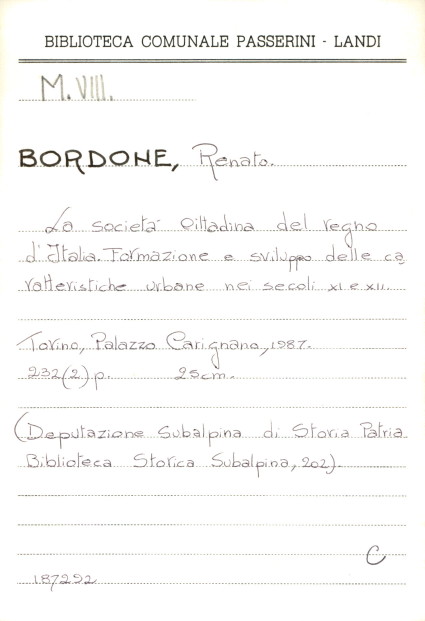 BIBLIOTECA COMUNALE PASSERINI - LANDI
M.VIII.
BORDONE, Renato.
La società cittadina del regno
d'Italia. Formazione e sviluppo delle ca
ratteristiche urbane nei secoli XI e XII.
Torino, Palazzo Carignano, 1987.
232(2)p. 25cm.
(Deputazione Subalpina di Storia Patria
Biblioteca Storica Subalpina, 202).
C
187292